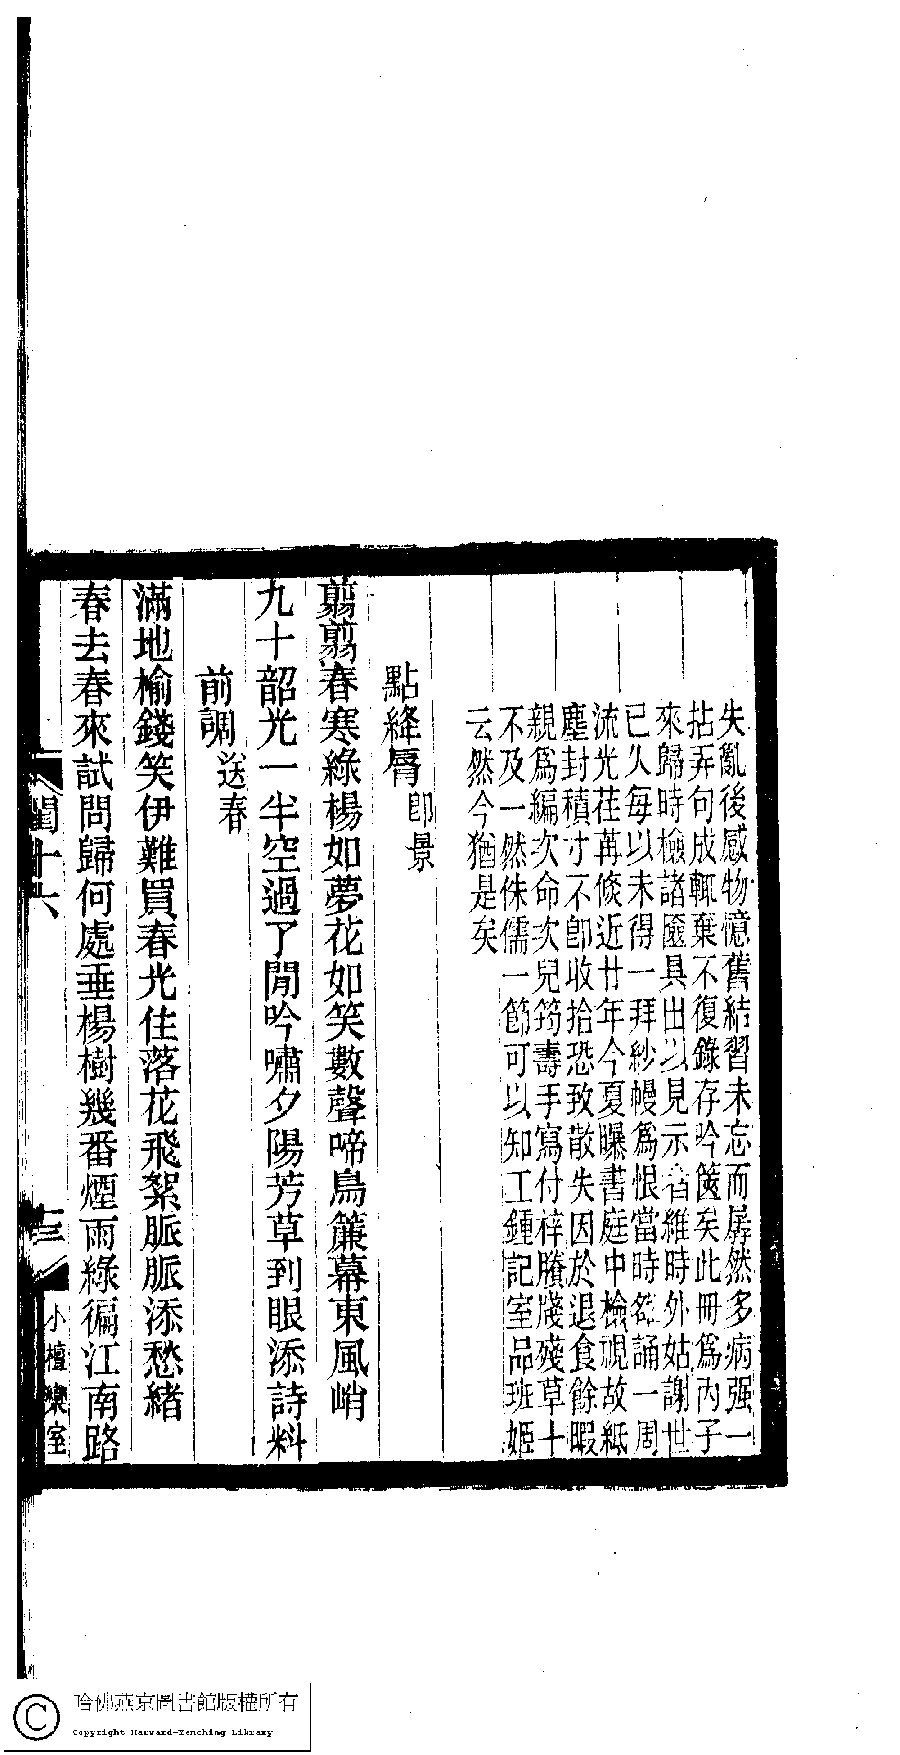 失亂後感物憶舊結習未忘而孱然多病强一
拈弄句成輒棄不復錄存吟篋矣此冊爲內子
來歸時檢諸匳具出以見示者維時外姑謝世
已久每以未得一拜紗幔爲恨當時雒誦一周
流光荏苒倏近廿年今夏曝書庭中檢視故紙
塵封積寸不卽收拾恐致散失因於退食餘暇
親爲編次命次兒筠壽手寫付梓賸牋殘草十
不及一然侏儒一節可以知工鍾記室品班姬
云然今猶是矣
點絳脣 卽景
翦翦春寒綠楊如夢花如笑數聲啼鳥簾幕東風峭
九十韶光一半空過了閒吟嘯夕陽芳草到眼添詩料
前調 送春
滿地榆錢笑伊難買春光住落花飛絮脈脈添愁緒
春去春來試問歸何處垂楊樹幾番煙雨綠徧江南路
閨十六
三
小檀欒室
哈佛燕京圖書館版權所有
Copyright Harvard-Yenching Library